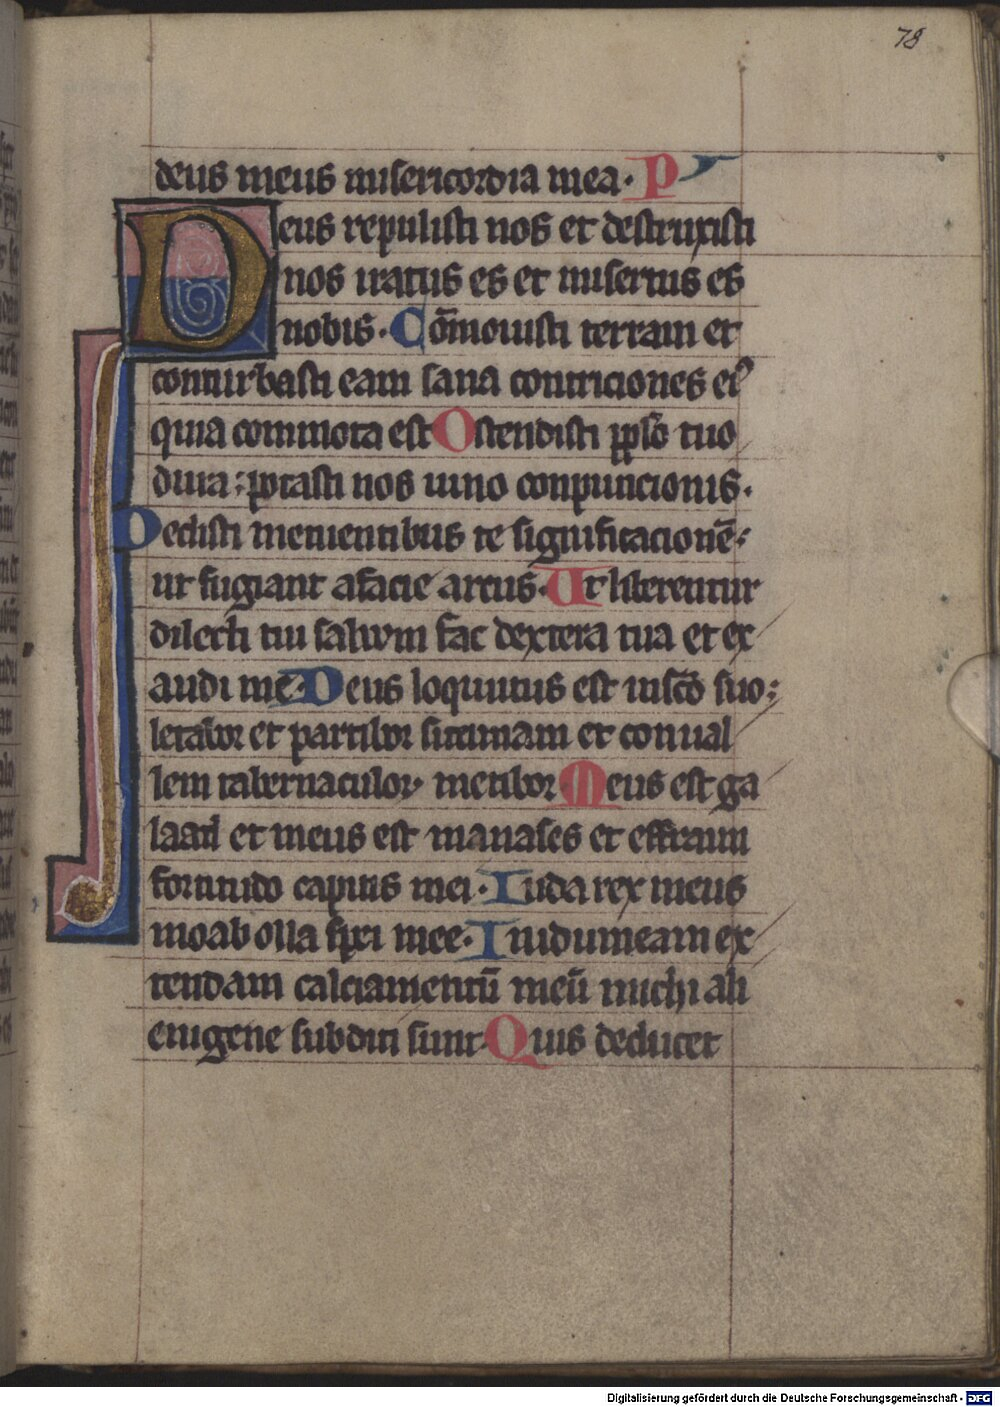 78
deus meus misericordia mea. P
Deus repulisti nos et destruxisti
nos iratus es et misertus es
nobis. Cōmouisti terram et
conturbasti eam sana contriciones ei
quia commota est Ostendisti ppło tuo
dura: potasti nos uino conpuncionis.
Dedisti metuentibus te significacionē:
ut fugiant afacie arcus. Ut liberentur
dilecti tui saluum fac dextera tua et ex
audi me. Deus loquutus est insc̄o suo:
letabor et partibor sicimam et conual
lem tabernaculor metibor Meus est ga
laad et meus est manases et effraim
fortitudo capitis mei. Iuda rex meus
moab olla spei mee. Inidumeam ex
tendam calciamentū meū michi ali
enigene subditi sunt Quis deducet
Digitalisierung gefördert durch die Deutsche Forschungsgemeinschaft - DFG